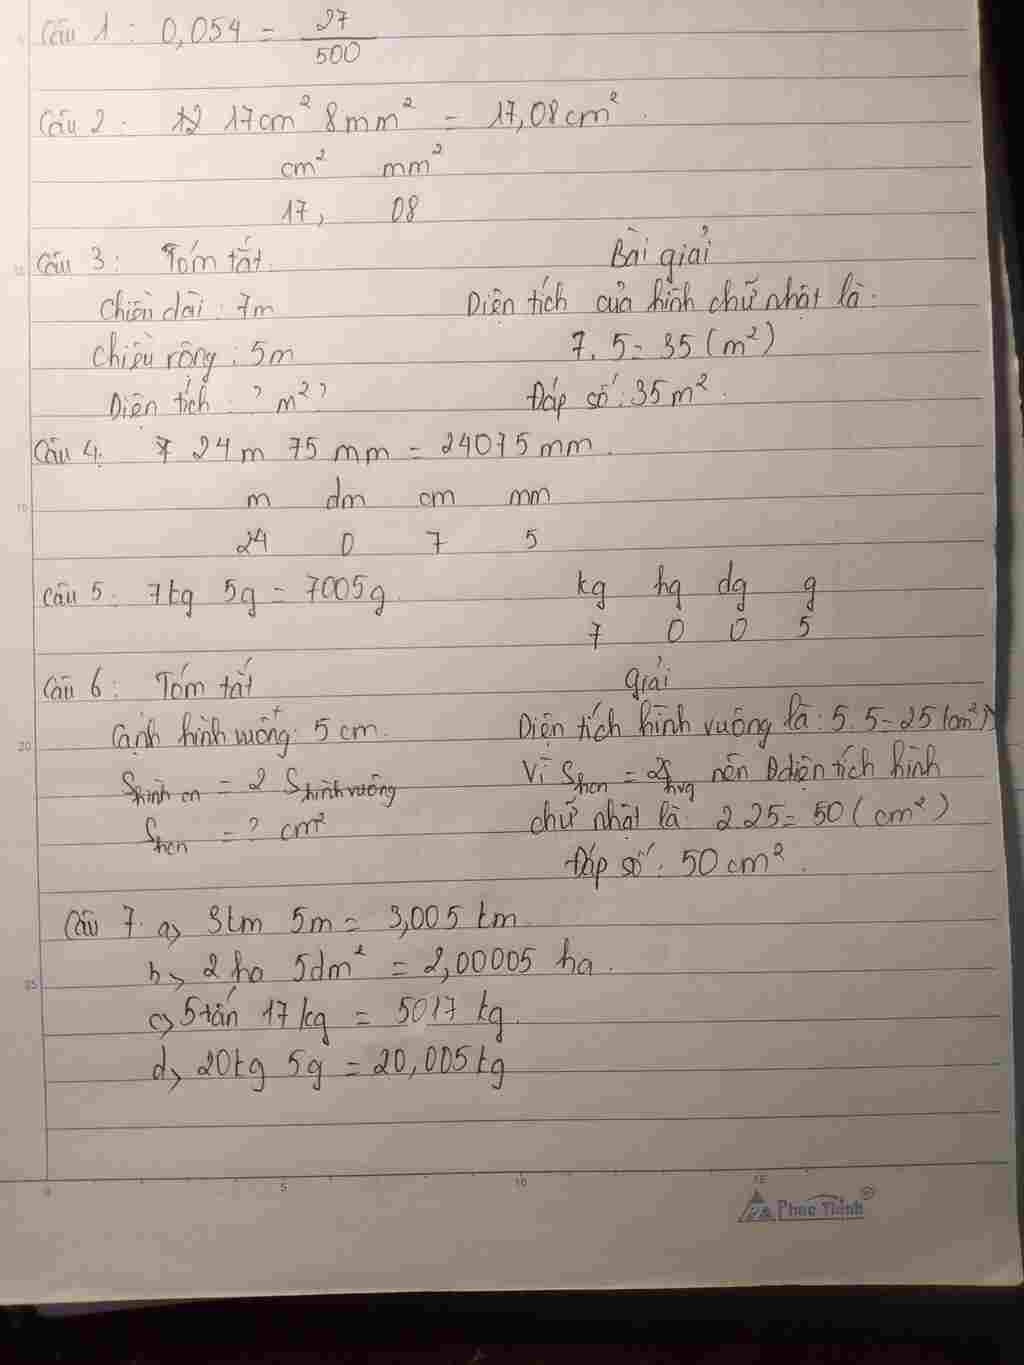 Câu 1 : 0,054 = 27/500
Câu 2 : 17cm² 8mm² = 17,08cm².
cm² mm²
17, 08
Câu 3 : Tóm tắt.
Chiều dài : 7m
Chiều rộng : 5m
Diện tích : ? m² ?
Bài giải
Diện tích của hình chữ nhật là :
7. 5 = 35 (m²)
Đáp số : 35 m².
Câu 4. 24m 75mm = 24075mm.
m dm cm mm
24 0 7 5
Câu 5 : 7kg 5g = 7005g.
kg hg dg g
7 0 0 5
Câu 6 : Tóm tắt
Cạnh hình vuông : 5 cm.
Shình cn = 2 Shình vuông
Shcn = ? cm²
Giải
Diện tích hình vuông là : 5. 5 = 25 (cm²)
Vì Shcn = 2Shvg nên diện tích hình
chữ nhật là : 2.25 = 50 (cm²)
Đáp số : 50 cm².
Câu 7. a, 3km 5m = 3,005 km.
b, 2 ha 5dm² = 2,00005 ha.
c, 5 tấn 17 kg = 5017 kg.
d, 20kg 5g = 20,005kg
0 5 10 15
Phuc Thinh